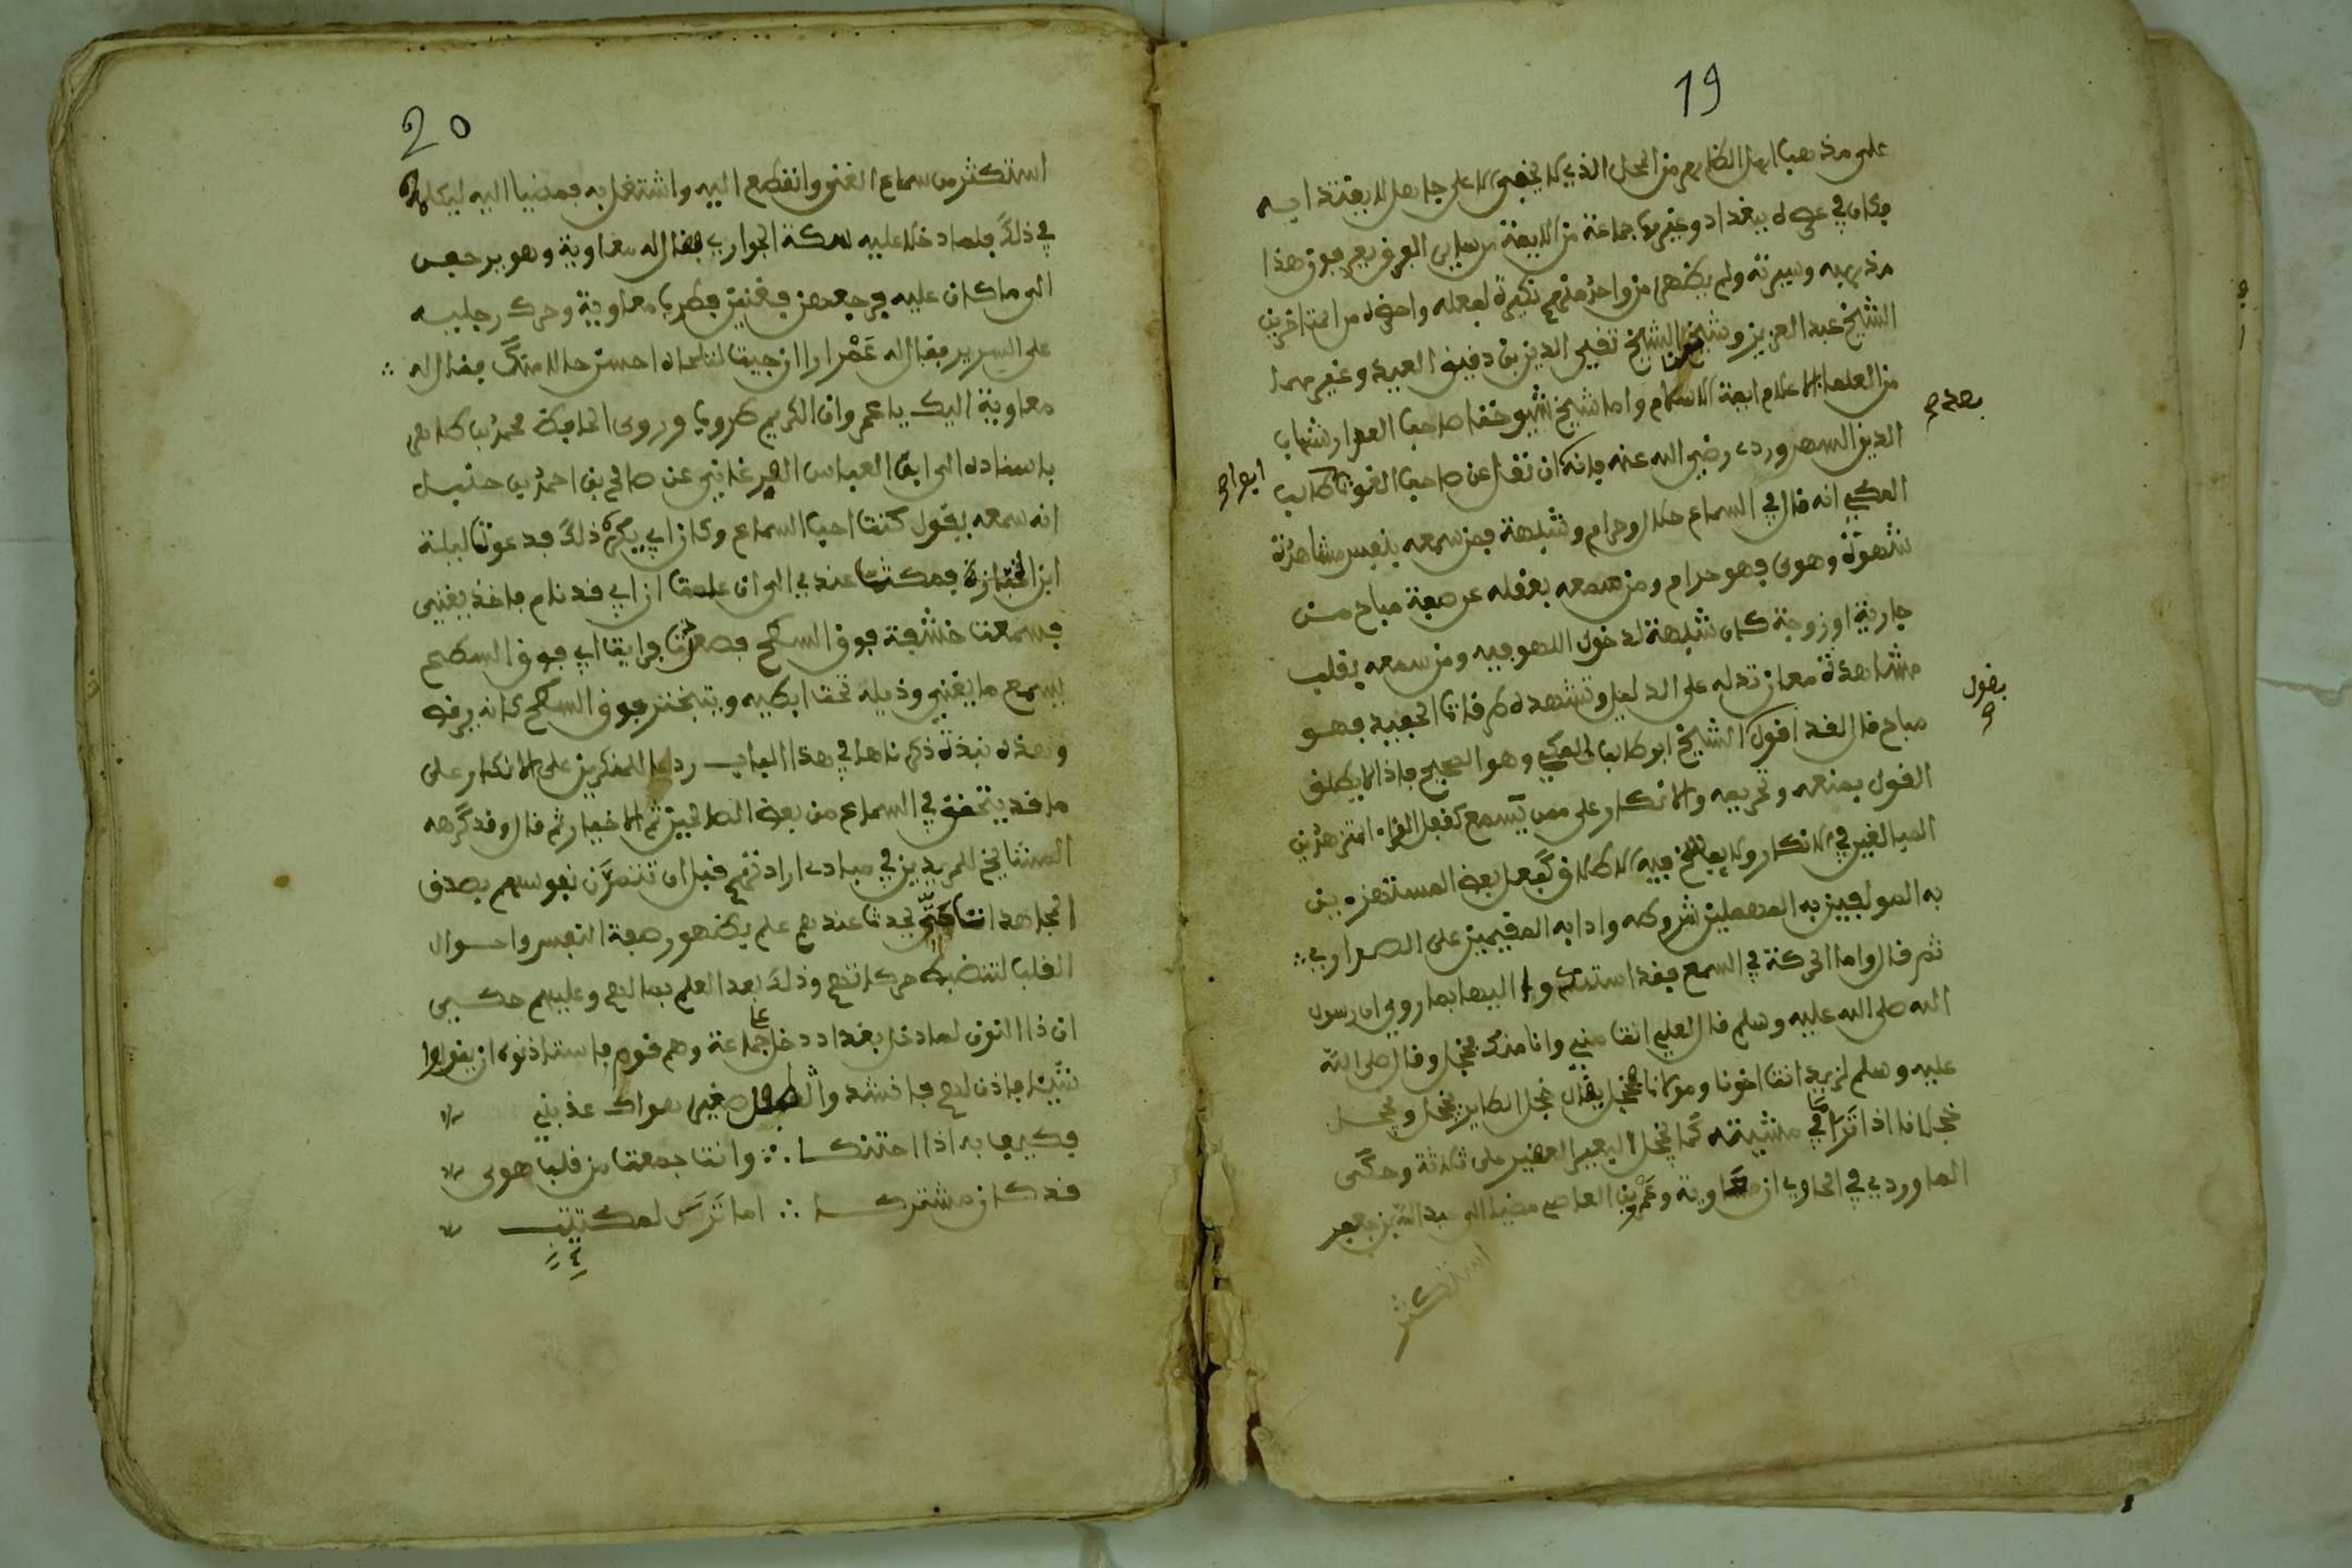 19
على مذهب اهل الظاهر من المحل الذي لا يخفى الا على جاهل لا يقتدا به
وكان في عصره ببغداد وغيرها جماعة من الايمة
مذهبه وسيرته ولم يظهر من واحد منهم نكيرة لفعله واحضره من المتاخرين
الشيخ عبد العزيز وشيخنا الشيخ تقي الدين بن دقيق العيد وغيرهما
من العلماء الاعلام ايمة الاسلام واما شيخ شيوخنا صاحب العوارف شهاب
الدين السهروردي رضي الله عنه فانه كان نقل عن صاحب القوت طالب
المكي انه قال في السماع حلال وحرام وشبهة فمن سمعه بنفس مشاهدة
شهوة وهوى فهو حرام ومن سمعه بعقله عن صفة مباح من
جارية او زوجة كان شبهة لدخول اللهو فيه ومن سمعه بقلب
مشاهدة معان تدله على الدليل وتشهده طرقات الجليل فهو
مباح قال لقد اقول الشيخ ابو طالب المكي وهو الصحيح فاذا لا يطلق
القول بمنعه وتحريمه والانكار على من يسمع كفعل القراء المتزهدين
المبالغين في الانكار ولا يفسح فيه الاطلاق كفعل بعض المستهزءين
به المولعين به المهملين شروطه وادابه المقيمين على الاصرار
ثم قال واما الحركة في السمع فقد استندوا اليها بما روي ان رسول
الله صلى الله عليه وسلم قال لعلي انت مني وانا منك فحجل وقال صلى الله
عليه وسلم لزيد انت اخونا ومولانا فحجل يقال حجل الطاير يحجل ويحجل
حجلانا اذا نزا في مشيته كما يحجل البعير العقير على ثلاثة وحكى
الماوردي في الحاوي ان معاوية وعمرو بن العاص مضيا الى عبد الله بن جعفر
استكثر
بعضهم
ابو
بقول
20
استكثر من سماع الغنى وانقطع اليه واشتغل به فمضيا اليه ليكلماه
في ذلك فلما دخلا عليه سكت الجواري فقال له معاوية وهو يرجعن
الى ما كان عليه فرجعهن فغنين فطرب معاوية وحرك رجليه
على السرير فقال له عمرو ان من جيت لتلحاه احسن حالا منك فقال له
معاوية اليك يا عمرو ان الكريم طروب وروى الحافظ محمد بن طاهر
باسناده الى ابي العباس الفرغاني عن صالح بن احمد بن حنبل
انه سمعه يقول كنت احب السماع وكان ابي يكره ذلك فدعوت ليلة
ابن الخبازة فمكث عندي الى ان علمت ان ابي قد نام فاخذ يغني
فسمعت خشفة فوق السطح فصعدت فرايت ابي فوق السطح
يسمع ما يغني وذيله تحت ابطيه ويتبختر فوق السطح كانه يرقص
وهذه نبذة ذكرناها في هذا الباب ردعا للمنكرين على الانكار على
ما قد يتحقق في السماع من بعض الصالحين ثم الاخيار ثم قال وقد كرهه
المشايخ للمريدين في مبادي ارادتهم قبل ان تتمرن نفوسهم بصدق
المجاهدات حتى يحدث عندهم علم بظهور صفة النفس واحوال
القلب لتنضبط حركاتهم وذلك بعد العلم بما لهم وعليهم حكي
ان ذا النون لما دخل بغداد دخل عليه جماعة وهم قوم فاستاذنوه ان يقولوا
شيئا فاذن لهم فانشد وا صغير هواك عذبني
فكيف به اذا احتنكا ∴ وانت جمعت من قلبي هوى
قد كان مشتركا ∴ اما ترثي لمكتئب